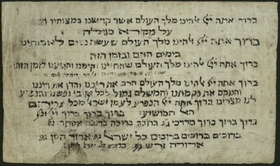 ברוך אתה ייי אלהינו מלך העולם אשר קדשנו במצותיו וצונו
על מקרא מגילה
ברוך אתה ייי אלהינו מלך העולם שעשה נסים לאבותינו
בימים ההם ובזמן הזה
ברוך אתה ייי אלהינו מלך העולם שהחיינו וקיימנו והגיענו לזמן הזה
ברוך אתה ייי אלהינו מלך העולם הרב את ריבנו והדן את דיננו
והנוקם את נקמתנו והמשלם גמול לכל אויבי נפשנו והנפרע
לנו מצרינו ברוך אתה ייי הנפרע לעמו ישראל מכל צריהם
האל המושיע
ברוך מרדכי
ברוכים כל ישראל
ארורה זרש